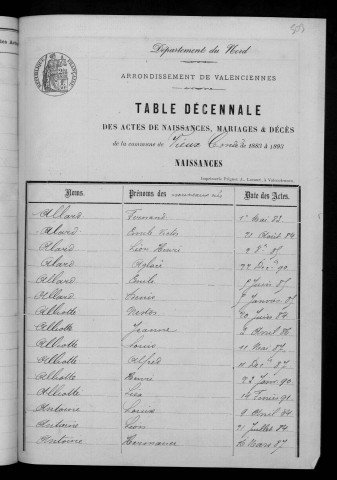 Département du Nord
ARRONDISSEMENT DE VALENCIENNES
TABLE DÉCENNALE
DES ACTES DE NAISSANCES, MARIAGES & DÉCÈS
de la commune de Vieux Condé de 1883 à 1893
NAISSANCES
Noms. Prénoms des nouveaux nés Date des Actes.
Allard Fernand 1er Mai 83
Alard 21 Août 84
Alard Léon Henri 85
Alard Aglaé 22 Xbre 90
Allard Emile 5 Juin 85
Allard 5 Janvier 85
Alliotte 20 Juin 84
Alliotte Jeanne 2 Avril 86
Alliotte Louis 11 Mai 87
Alliotte Alfred 11 Xbre 87
Alliotte Henri 22 Janv. 90
Alliotte Léa 14 Février 91
Antoine Louis 9 Avril 84
Antoine Léon 21 Juillet 84
Antoine Hermance 26 Mars 87